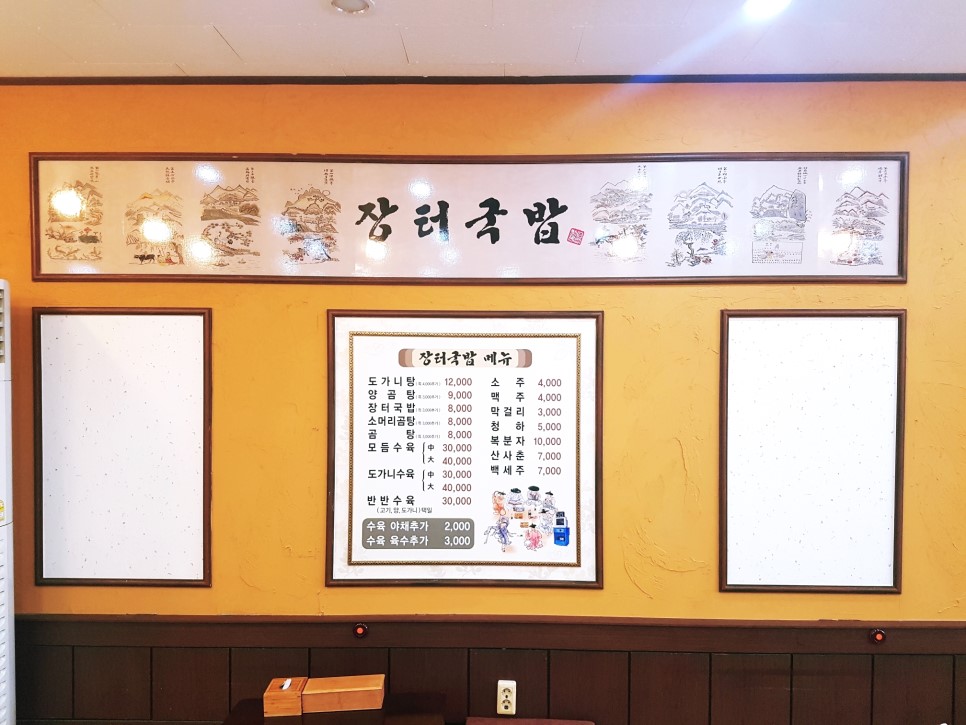 장터국밥
장터국밥 메뉴
도가니탕 12,000
양곰탕 9,000
장터국밥 8,000
소머리곰탕 8,000
곰탕 8,000
모듬수육 中 30,000
大 40,000
도가니수육 中 30,000
大 40,000
반반수육 30,000
(고기, 양, 도가니)택일
수육 야채추가 2,000
수육 육수추가 3,000
소주 4,000
맥주 4,000
막걸리 3,000
청하 5,000
복분자 10,000
산사춘 7,000
백세주 7,000